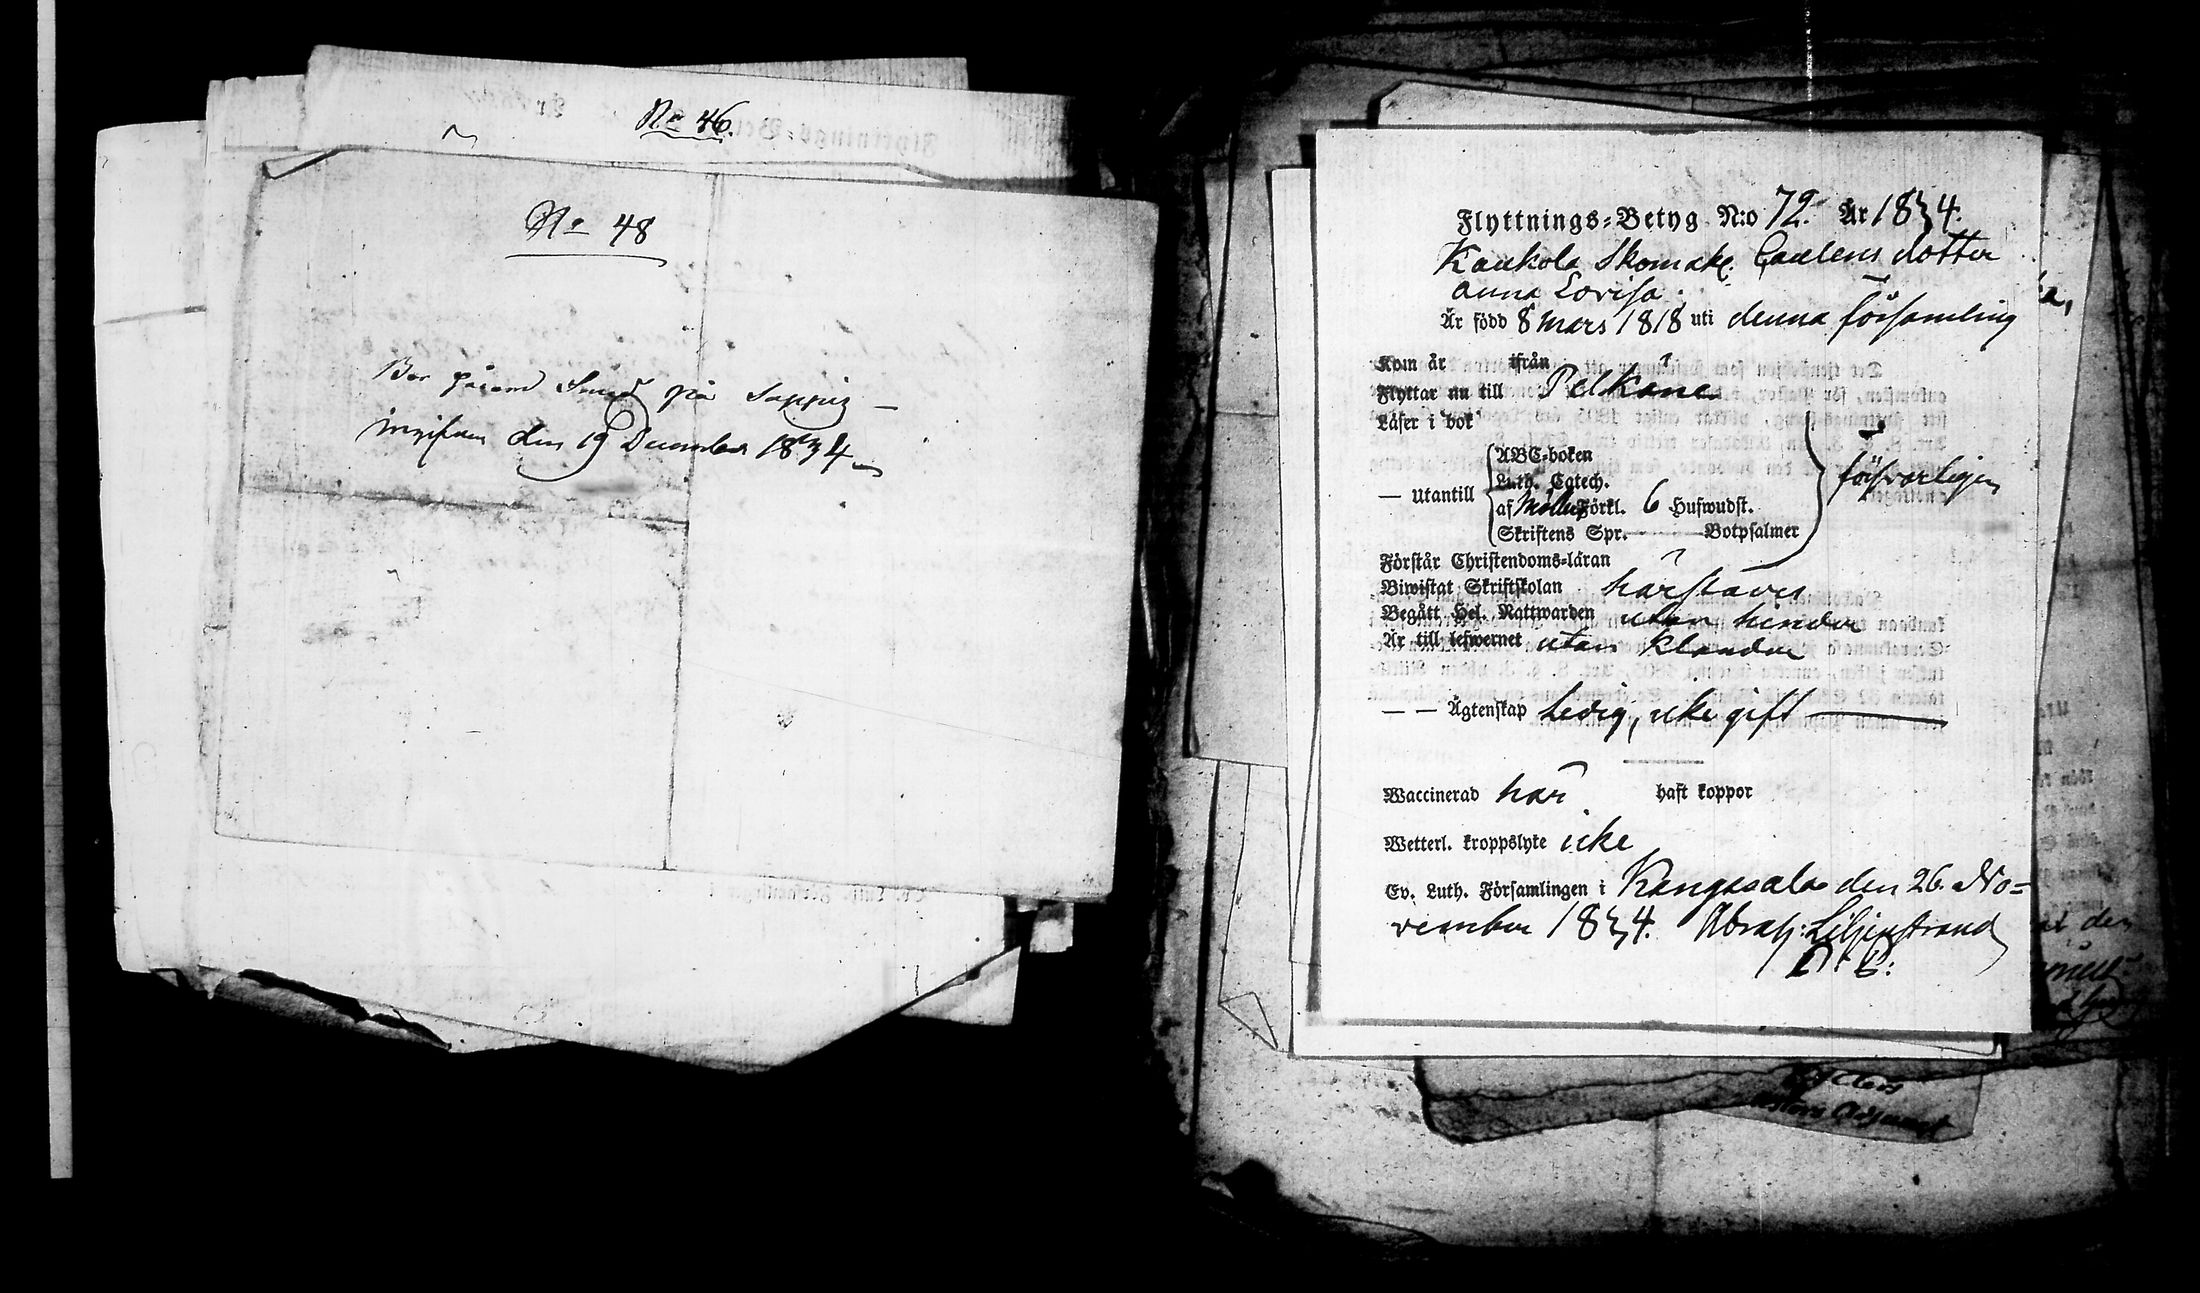 No 46.
No 48
Bor på Sappii
ingifven den 19 December 1834
Flyttnings-Betyg N:o 72. År 1834.
Kaukola Skomak. Carlens dotter
Anna Lovisa.
Är född 8 Mars 1818 uti denna församling
Kom år ifrån
Flyttar nu till Pelkäne
Läser i bok
— utantill
ABC-boken
Luth. Catech.
af Möllers Förkl. 6 Hufwudst.
Skriftens Spr. Botpsalmer
försvarligen
Förstår Christendoms-läran
Biwistat Skriftskolan härstädes
Begått Hel. Nattwarden utan hinder
Är till lefwernet utan klander
— — Ägtenskap ledig, icke gift
Waccinerad har haft koppor
Wetterl. kroppslyte icke
Ev. Luth. Församlingen i Kangasala den 26. No-
vember 1834. Abrah: Liljenstrand